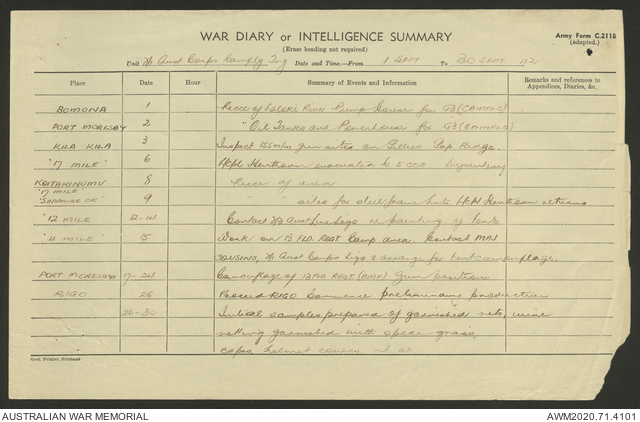 WAR DIARY or INTELLIGENCE SUMMARY
(Erase heading not required)
Army Form C.2118
(adapted.)
Unit Aust Corps Date and Time.—From 1 SEPT To 30 SEPT 42
Place Date Hour Summary of Events and Information Remarks and references to
Appendices, Diaries, &c.
BOMONA 1 Recce of Laloki River Pump House for G3 (CAMFLG)
PORT MORESBY 2 " Oil Tanks and Powerhouse for G3 (CAMFLG)
KILA KILA 3 Inspect 155 m/m gun sites on Pap Ridge.
'17 MILE' 6 evacuated to 5 CCS Dysentery
KOITAKINUMU 8 Recce of area
'17 MILE'
9 " sites for steel frame huts returns
'12 MILE' 12-14 Contact Aust re painting of tents
'11 MILE' 15 Work on 13 FLD REGT Camp area. Contact MAJ
COUSENS, Aust Corps Sigs & arrange for Tent camouflage
PORT MORESBY 17-24 Camouflage of 13 FLD REGT Gun positions
RIGO 25 Proceed RIGO Commence preliminary production
26-30 Initial samples prepared of garnished nets, wire
netting garnished with spear grass,
capes, helmet covers et al
Govt. Printer, Brisbane
AUSTRALIAN WAR MEMORIAL
AWM2020.71.4101